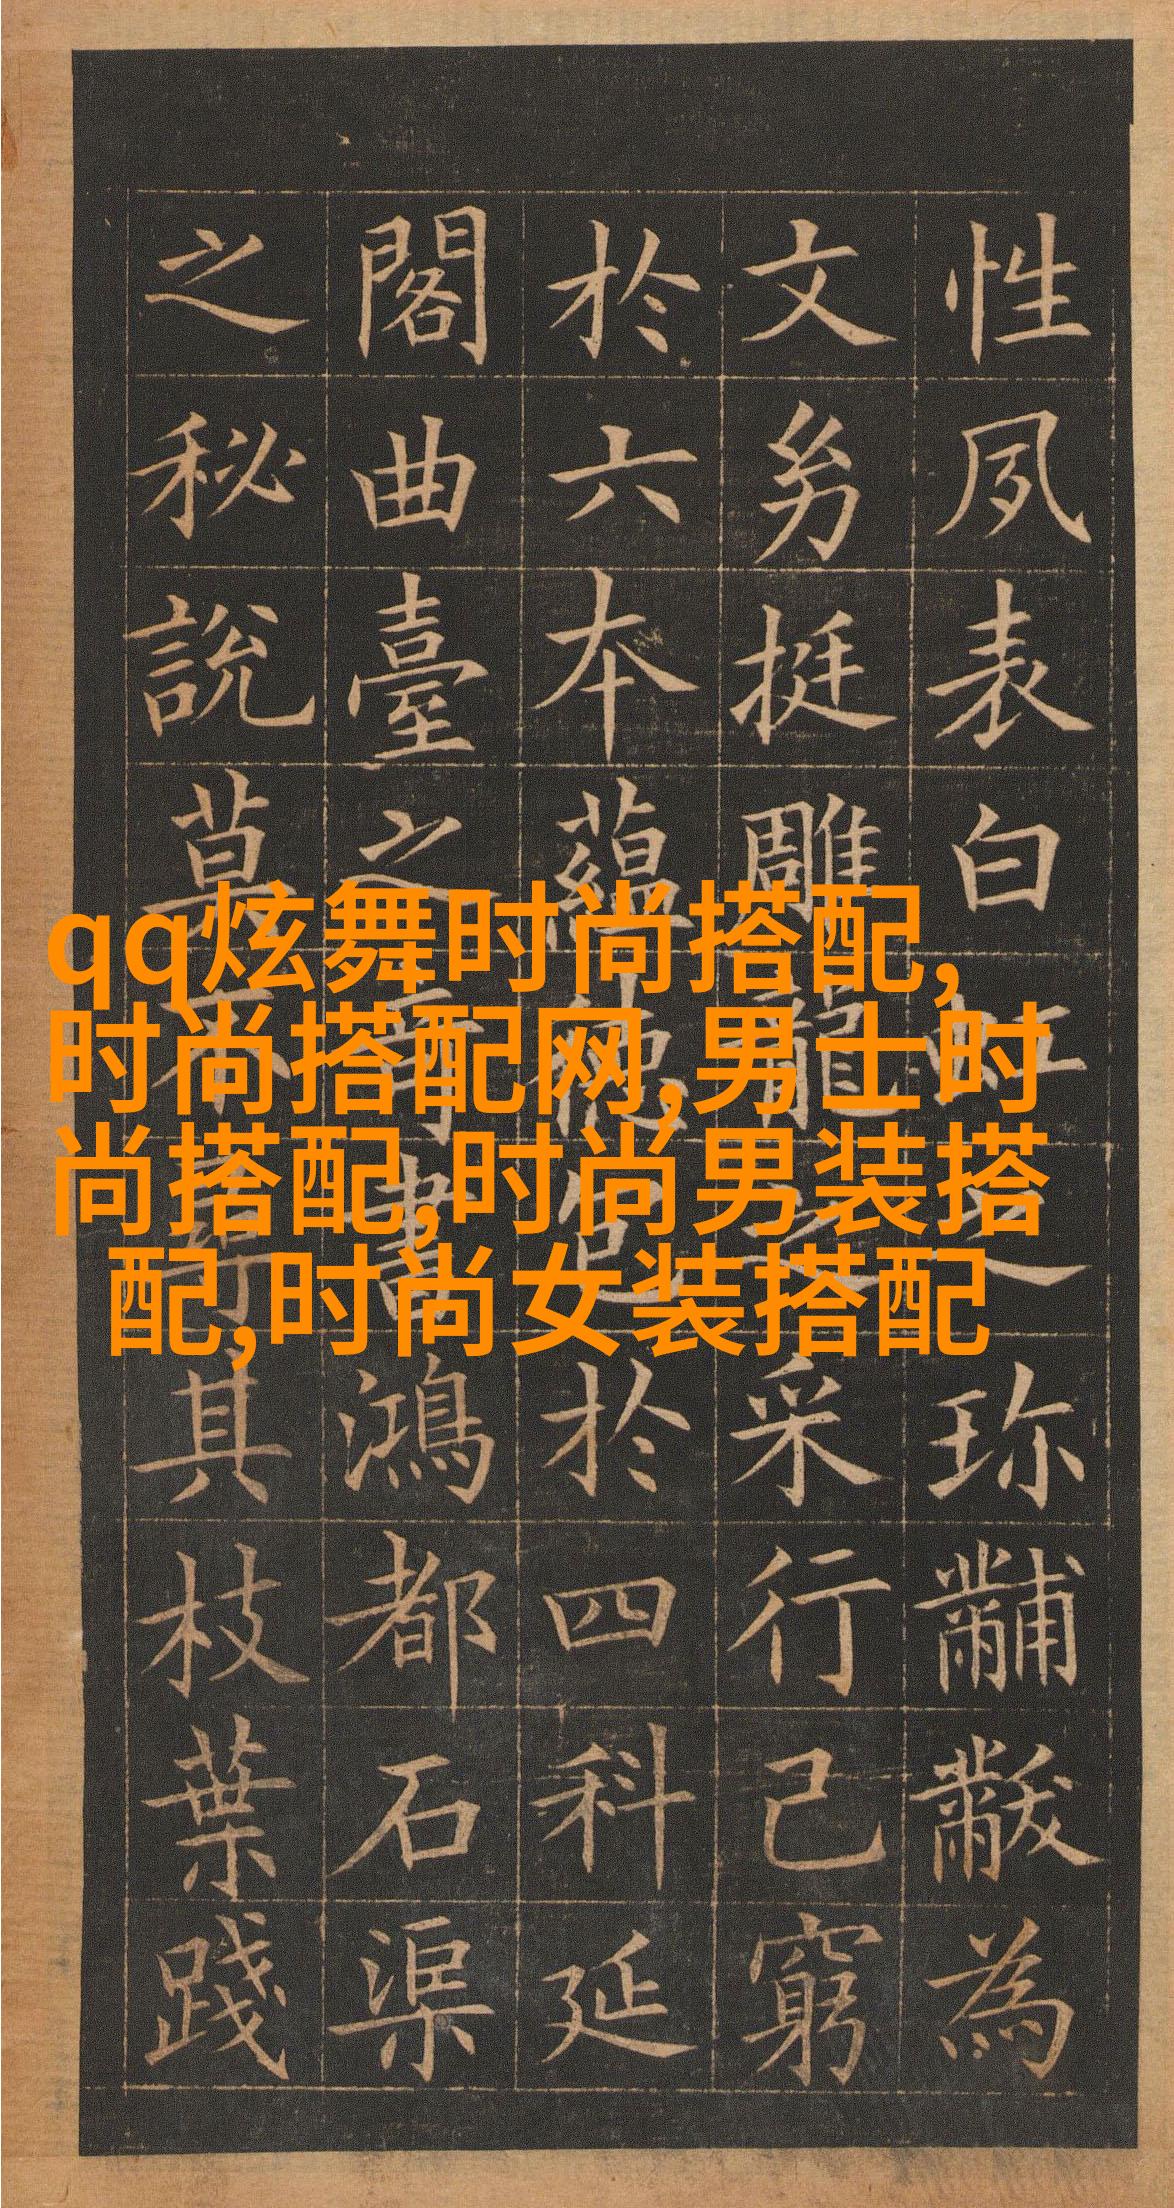 性夙表白虹之珍黼黻為
文㓜挺雕龍之采行己窮
於六本蘊德包於四科延
閣曲臺之奇書鴻都石渠
之秘說莫不尋其枝葉踐
qq炫舞时尚搭配,
时尚搭配网,男士时
尚搭配,时尚男装搭
配,时尚女装搭配